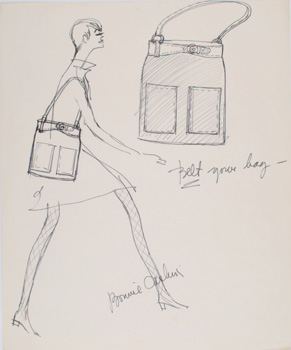 Belt your bag —
Bonnie Cashin